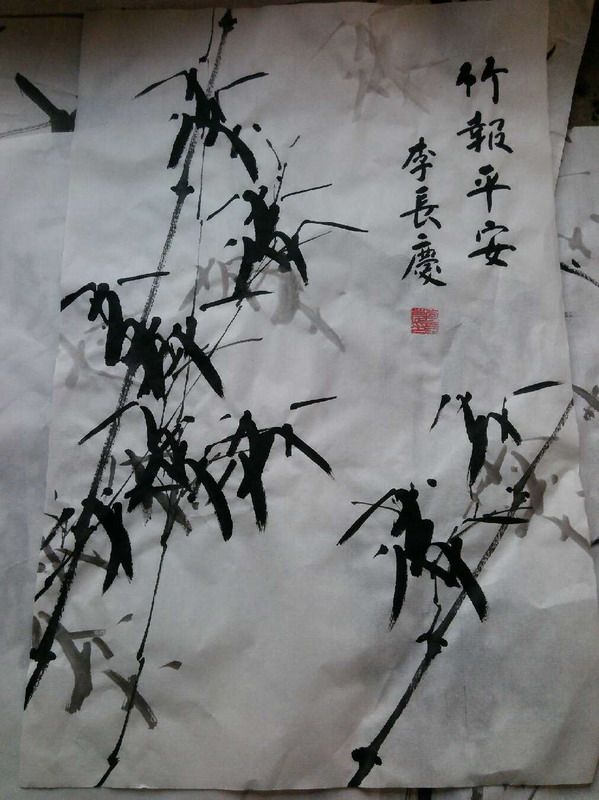 竹報平安
李長慶